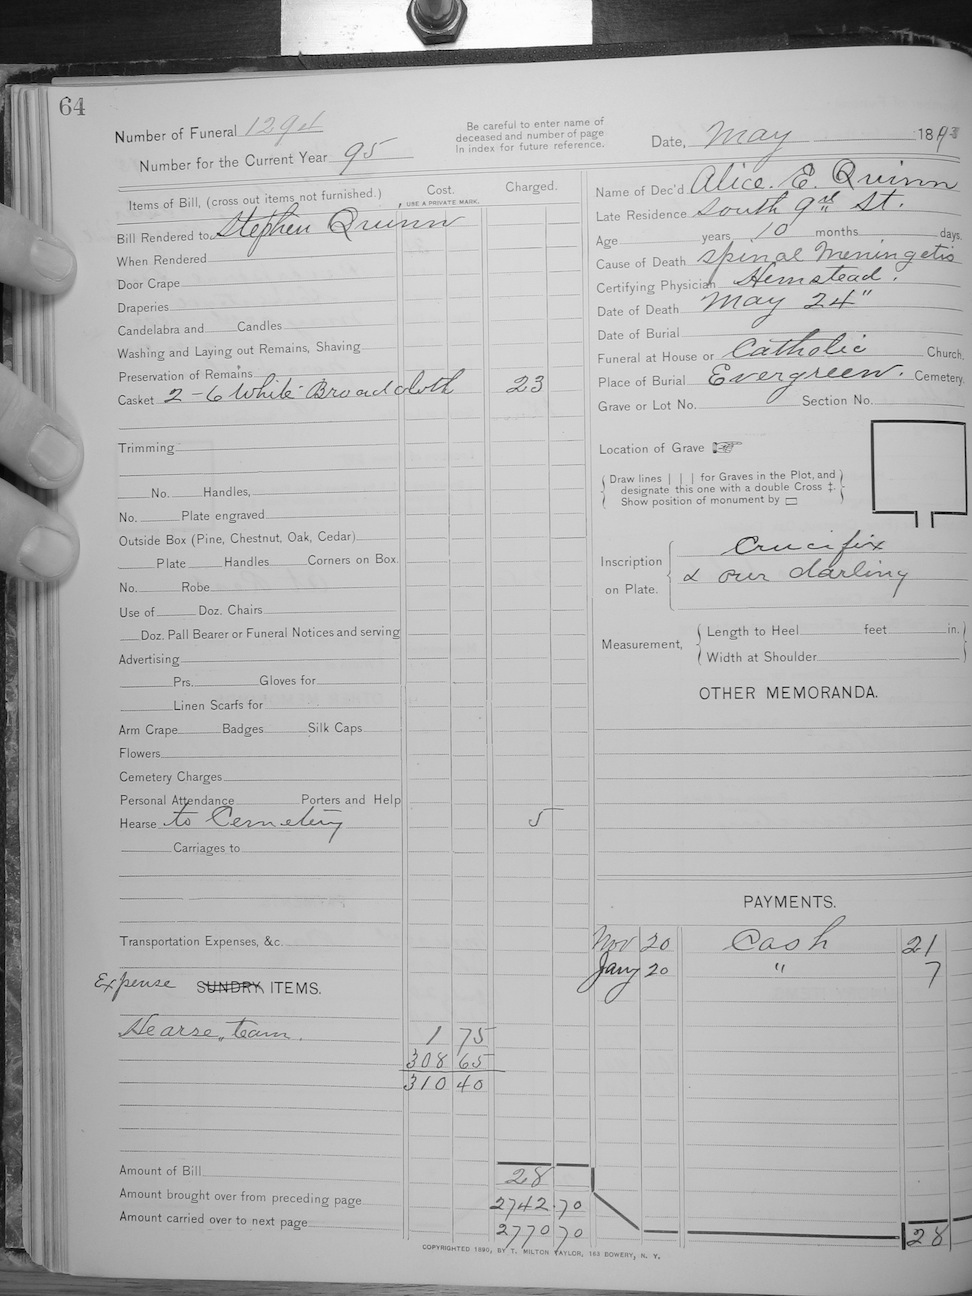 64
Number of Funeral 129
Number for the Current Year 95
Be careful to enter name of
deceased and number of page
in index for future reference.
Date, May 189
Items of Bill, (cross out items not furnished.) Cost. Charged.
USE A PRIVATE MARK.
Bill Rendered to Stephen Quinn
When Rendered
Door Crape
Draperies
Candelabra and Candles
Washing and Laying out Remains, Shaving
Preservation of Remains
Casket 2-6 White Broadcloth 23
Trimming
No. Handles,
No. Plate engraved
Outside Box (Pine, Chestnut, Oak, Cedar)
Plate Handles Corners on Box.
No. Robe
Use of Doz. Chairs
Doz. Pall Bearer or Funeral Notices and serving
Advertising
Prs. Gloves for
Linen Scarfs for
Arm Crape Badges Silk Caps
Flowers
Cemetery Charges
Personal Attendance Porters and Help
Hearse to Cemetery 5
Carriages to
Transportation Expenses, &c.
Expense SUNDRY ITEMS.
Hearse, team. 1 75
308 65
310 40
Amount of Bill 28
Amount brought over from preceding page 2742.70
Amount carried over to next page 2770 70
Name of Dec'd Alice. E. Quinn
Late Residence South 9 St.
Age years 10 months days.
Cause of Death Spinal Meningetis
Certifying Physician Hemstead.
Date of Death May 24"
Date of Burial
Funeral at House or Catholic Church.
Place of Burial Evergreen. Cemetery.
Grave or Lot No. Section No.
Location of Grave ☞
Draw lines | | | for Graves in the Plot, and
designate this one with a double Cross ‡.
Show position of monument by ▭
Inscription on Plate. Crucifix
& our darling
Measurement, Length to Heel feet in.
Width at Shoulder
OTHER MEMORANDA.
PAYMENTS.
Nov 20 Cash 21
Jany 20 " 7
28
COPYRIGHTED 1890, BY T. MILTON TAYLOR, 163 BOWERY, N. Y.